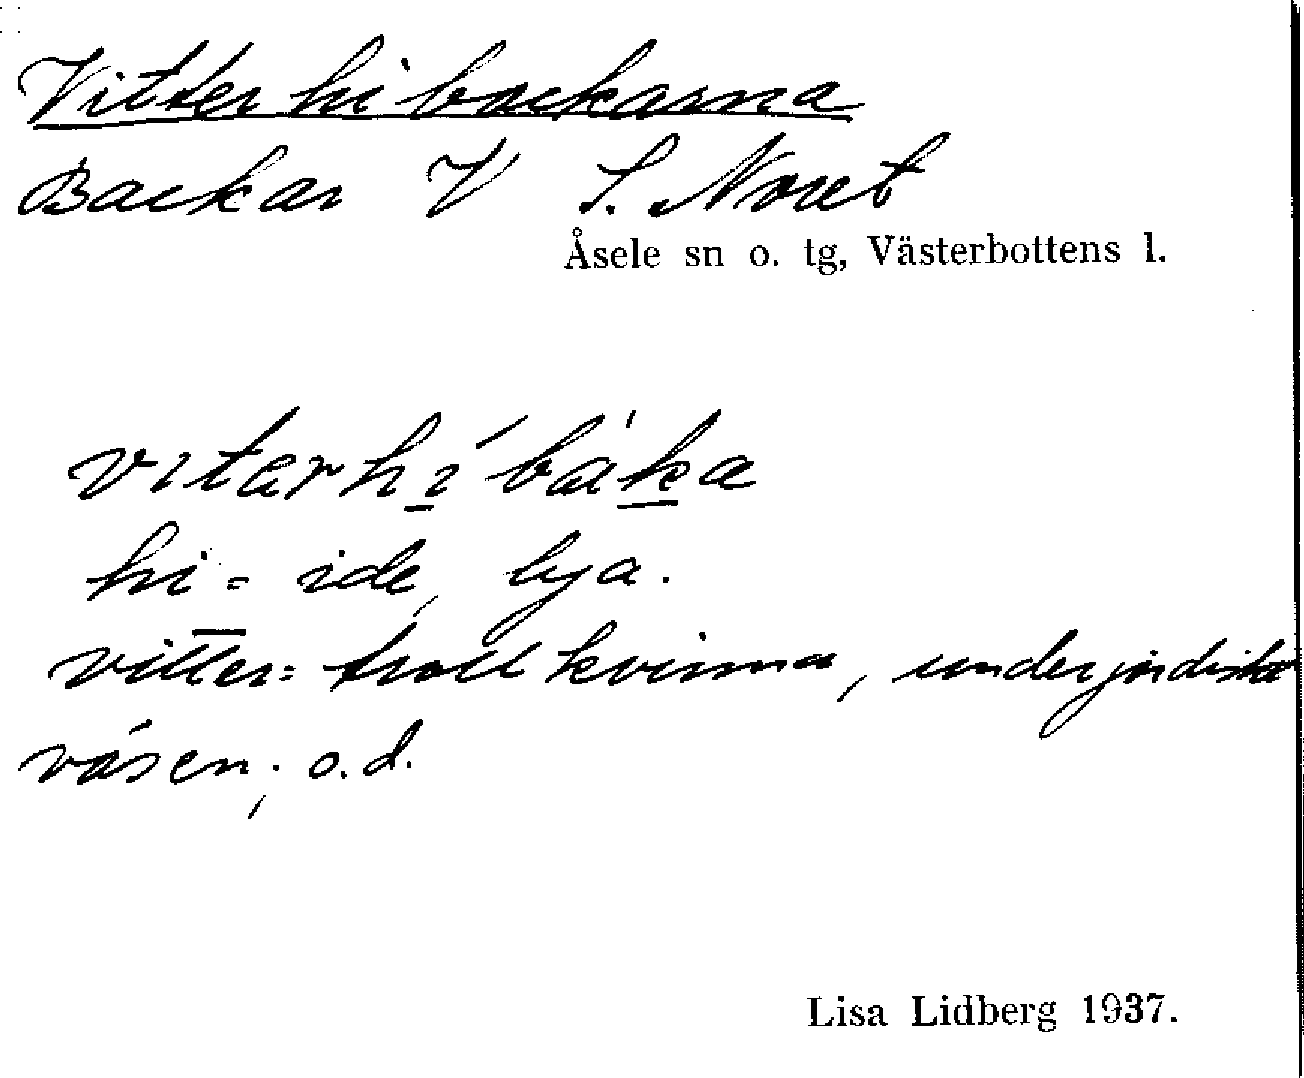 Vitterhibackarna
Backar V S. Noret
Åsele sn o. tg, Västerbottens l.
vıtərhı́ bàka
hi = ide, lya.
vitter = trollkvinna, underjordiska
väsen, o.d.
Lisa Lidberg 1937.